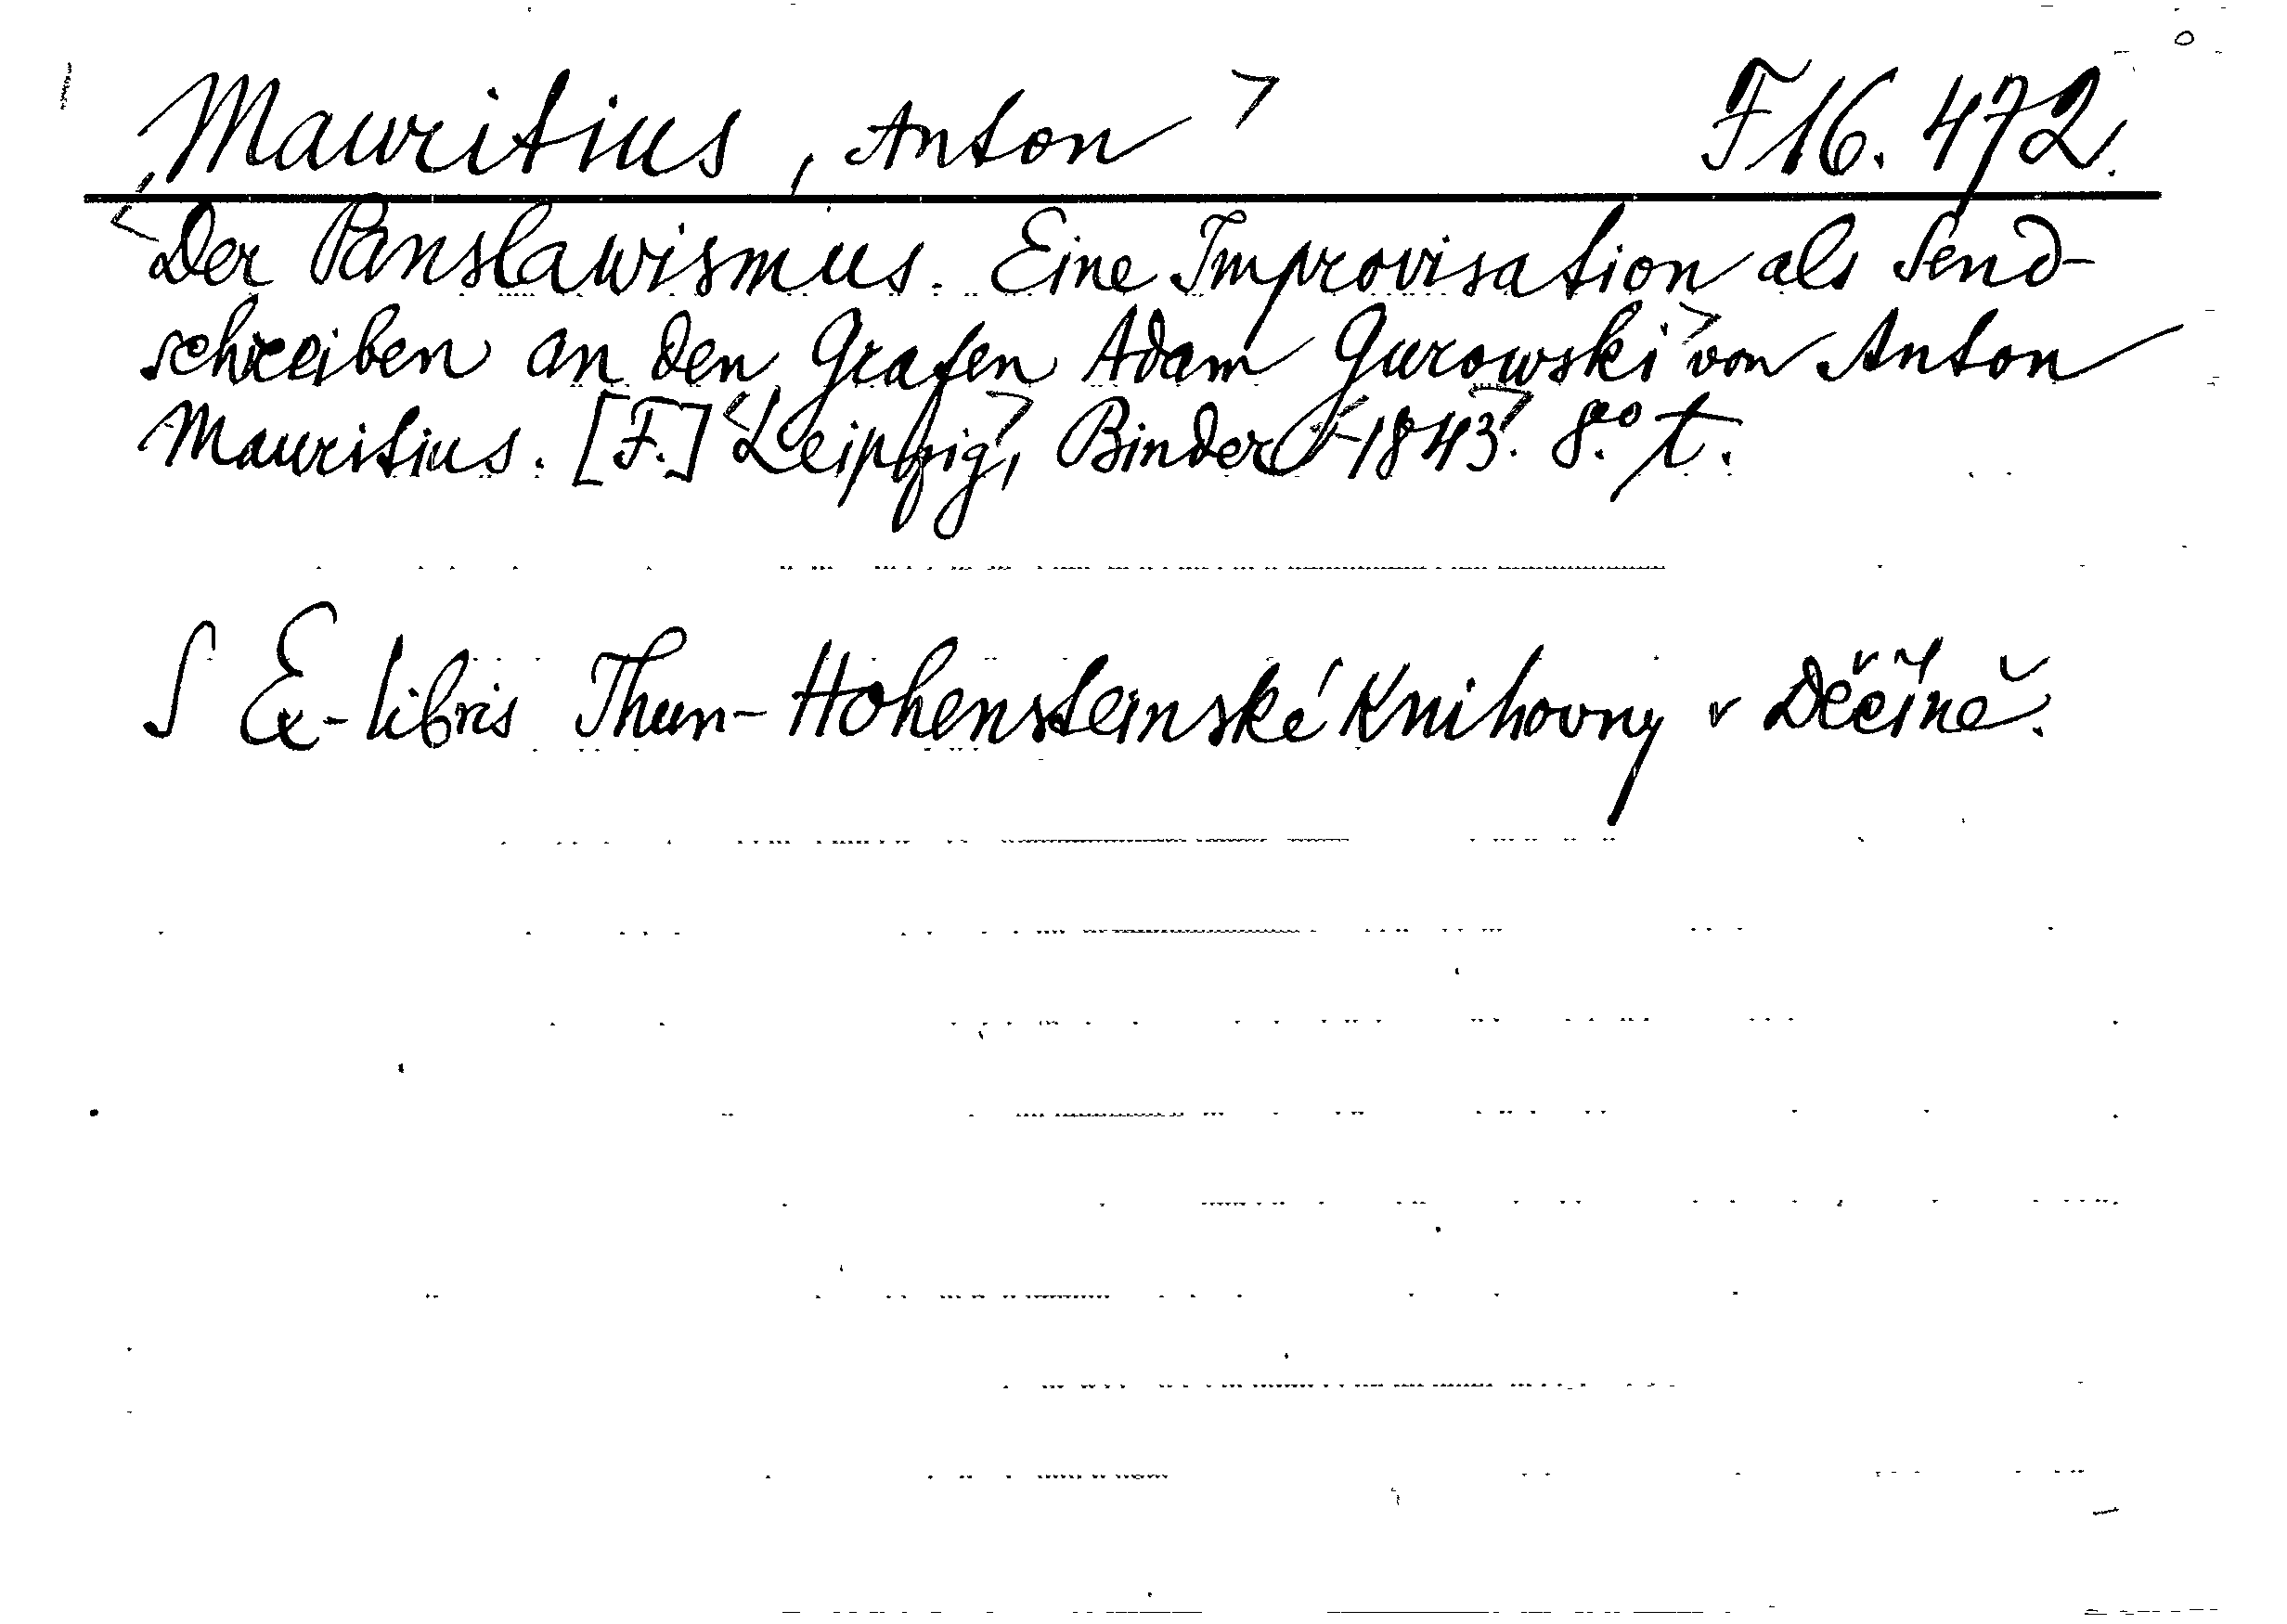 Mauritius, Anton F 16. 472.
Der Panslawismus. Eine Improvisation als Send-
schreiben an den Grafen Adam Gurowski von Anton
Mauritius. [F.] Leipzig, Binder 1843. 8° t.
Ex-libris Thun-Hohensteinské Knihovny v Děčíně.